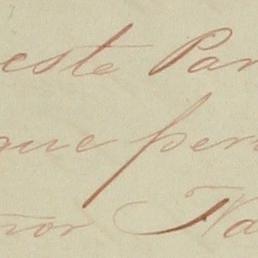 este Par
que per
nor Na